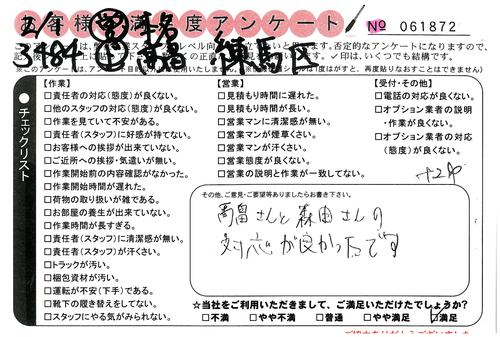 お客様満足度アンケート
№ 061872
2/1
3484
練馬区
チェックリスト
【作業】
□責任者の対応(態度)が良くない。
□他のスタッフの対応(態度)が良くない。
□作業を見ていて不安がある。
□責任者(スタッフ)に好感が持てない。
□お客様への挨拶が出来ていない。
□ご近所への挨拶・気遣いが無い。
□作業開始前の内容確認がなかった。
□作業開始時間が遅れた。
□荷物の取り扱いが雑である。
□お部屋の養生が出来ていない。
□作業時間が長すぎる。
□責任者(スタッフ)に清潔感が無い。
□責任者(スタッフ)が汗くさい。
□トラックが汚い。
□梱包資材が汚い。
□運転が不安(下手)である。
□靴下の履き替えをしてない。
□スタッフにやる気がみられない。
【営業】
□見積もり時間に遅れた。
□見積もり時間が長い。
□営業マンに清潔感が無い。
□営業マンが煙草くさい。
□営業マンが汗くさい。
□営業態度が良くない。
□営業の説明と作業が一致してない。
【受付・その他】
□電話の対応が良くない。
□オプション業者の説明
・作業が良くない。
□オプション業者の対応
(態度)が良くない。
その他、ご意見・ご要望等ありましたらお書き下さい。
高畠さんと森由さんの
対応が良かったです
☆当社をご利用いただきまして、ご満足いただけたでしょうか?
□不満 □やや不満 □普通 □やや満足 □満足